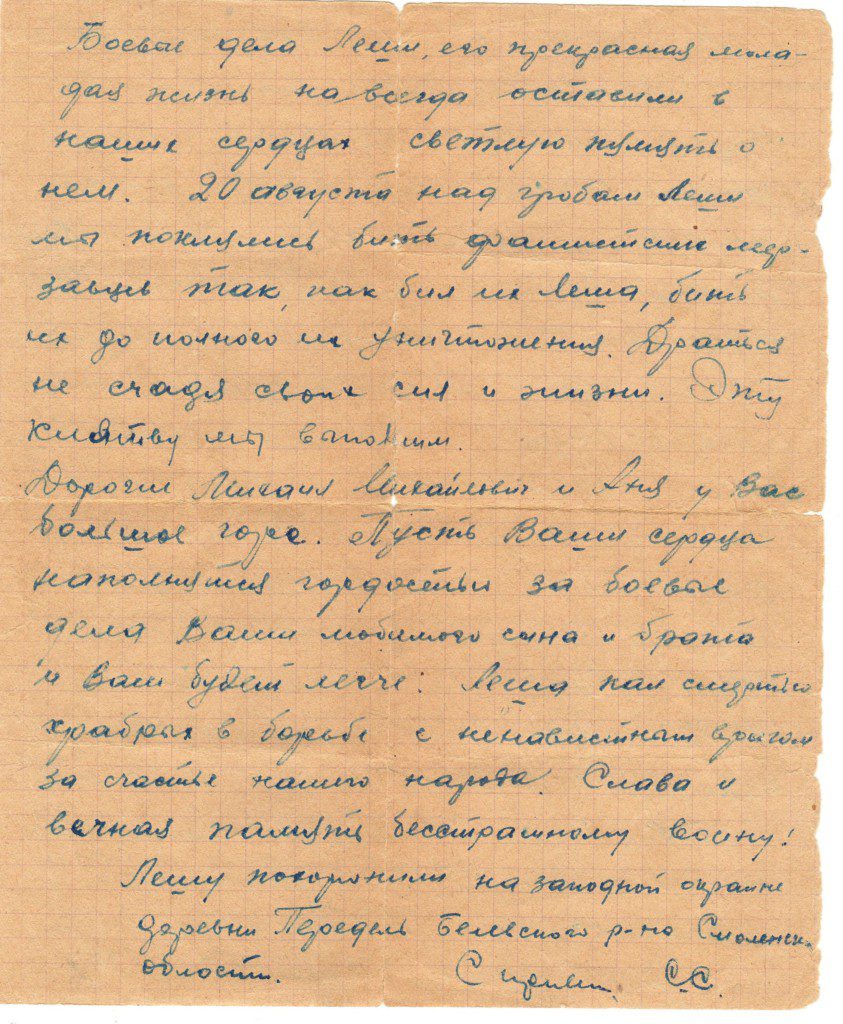 Боевые дела Леши, его прекрасная мола-
дая жизнь навсегда оставили в
наших сердцах светлую память о
нем. 20 августа над гробам Леши
мы поклялись бить фашистских мер-
завцев так, как бил их Леша, бить
их до полного их уничтожения. Драться
не счадя своих сил и жизни. Эту
клятву мы выполним.
Дорогие Михаил Михайлович и Аня у Вас
большое горе. Пусть Ваши сердца
наполнятся гордостью за боевые
дела Ваши любимого сына и брата
и Вам будет легче: Леша пал смертью
храбрых в борьбе с ненавистным врагом
за счастье нашего народа. Слава и
вечная память бесстрашному воину!
Лешу похоронили на западной окраине
деревни Передель Бельского р-на Смоленск.
области. С С.С.